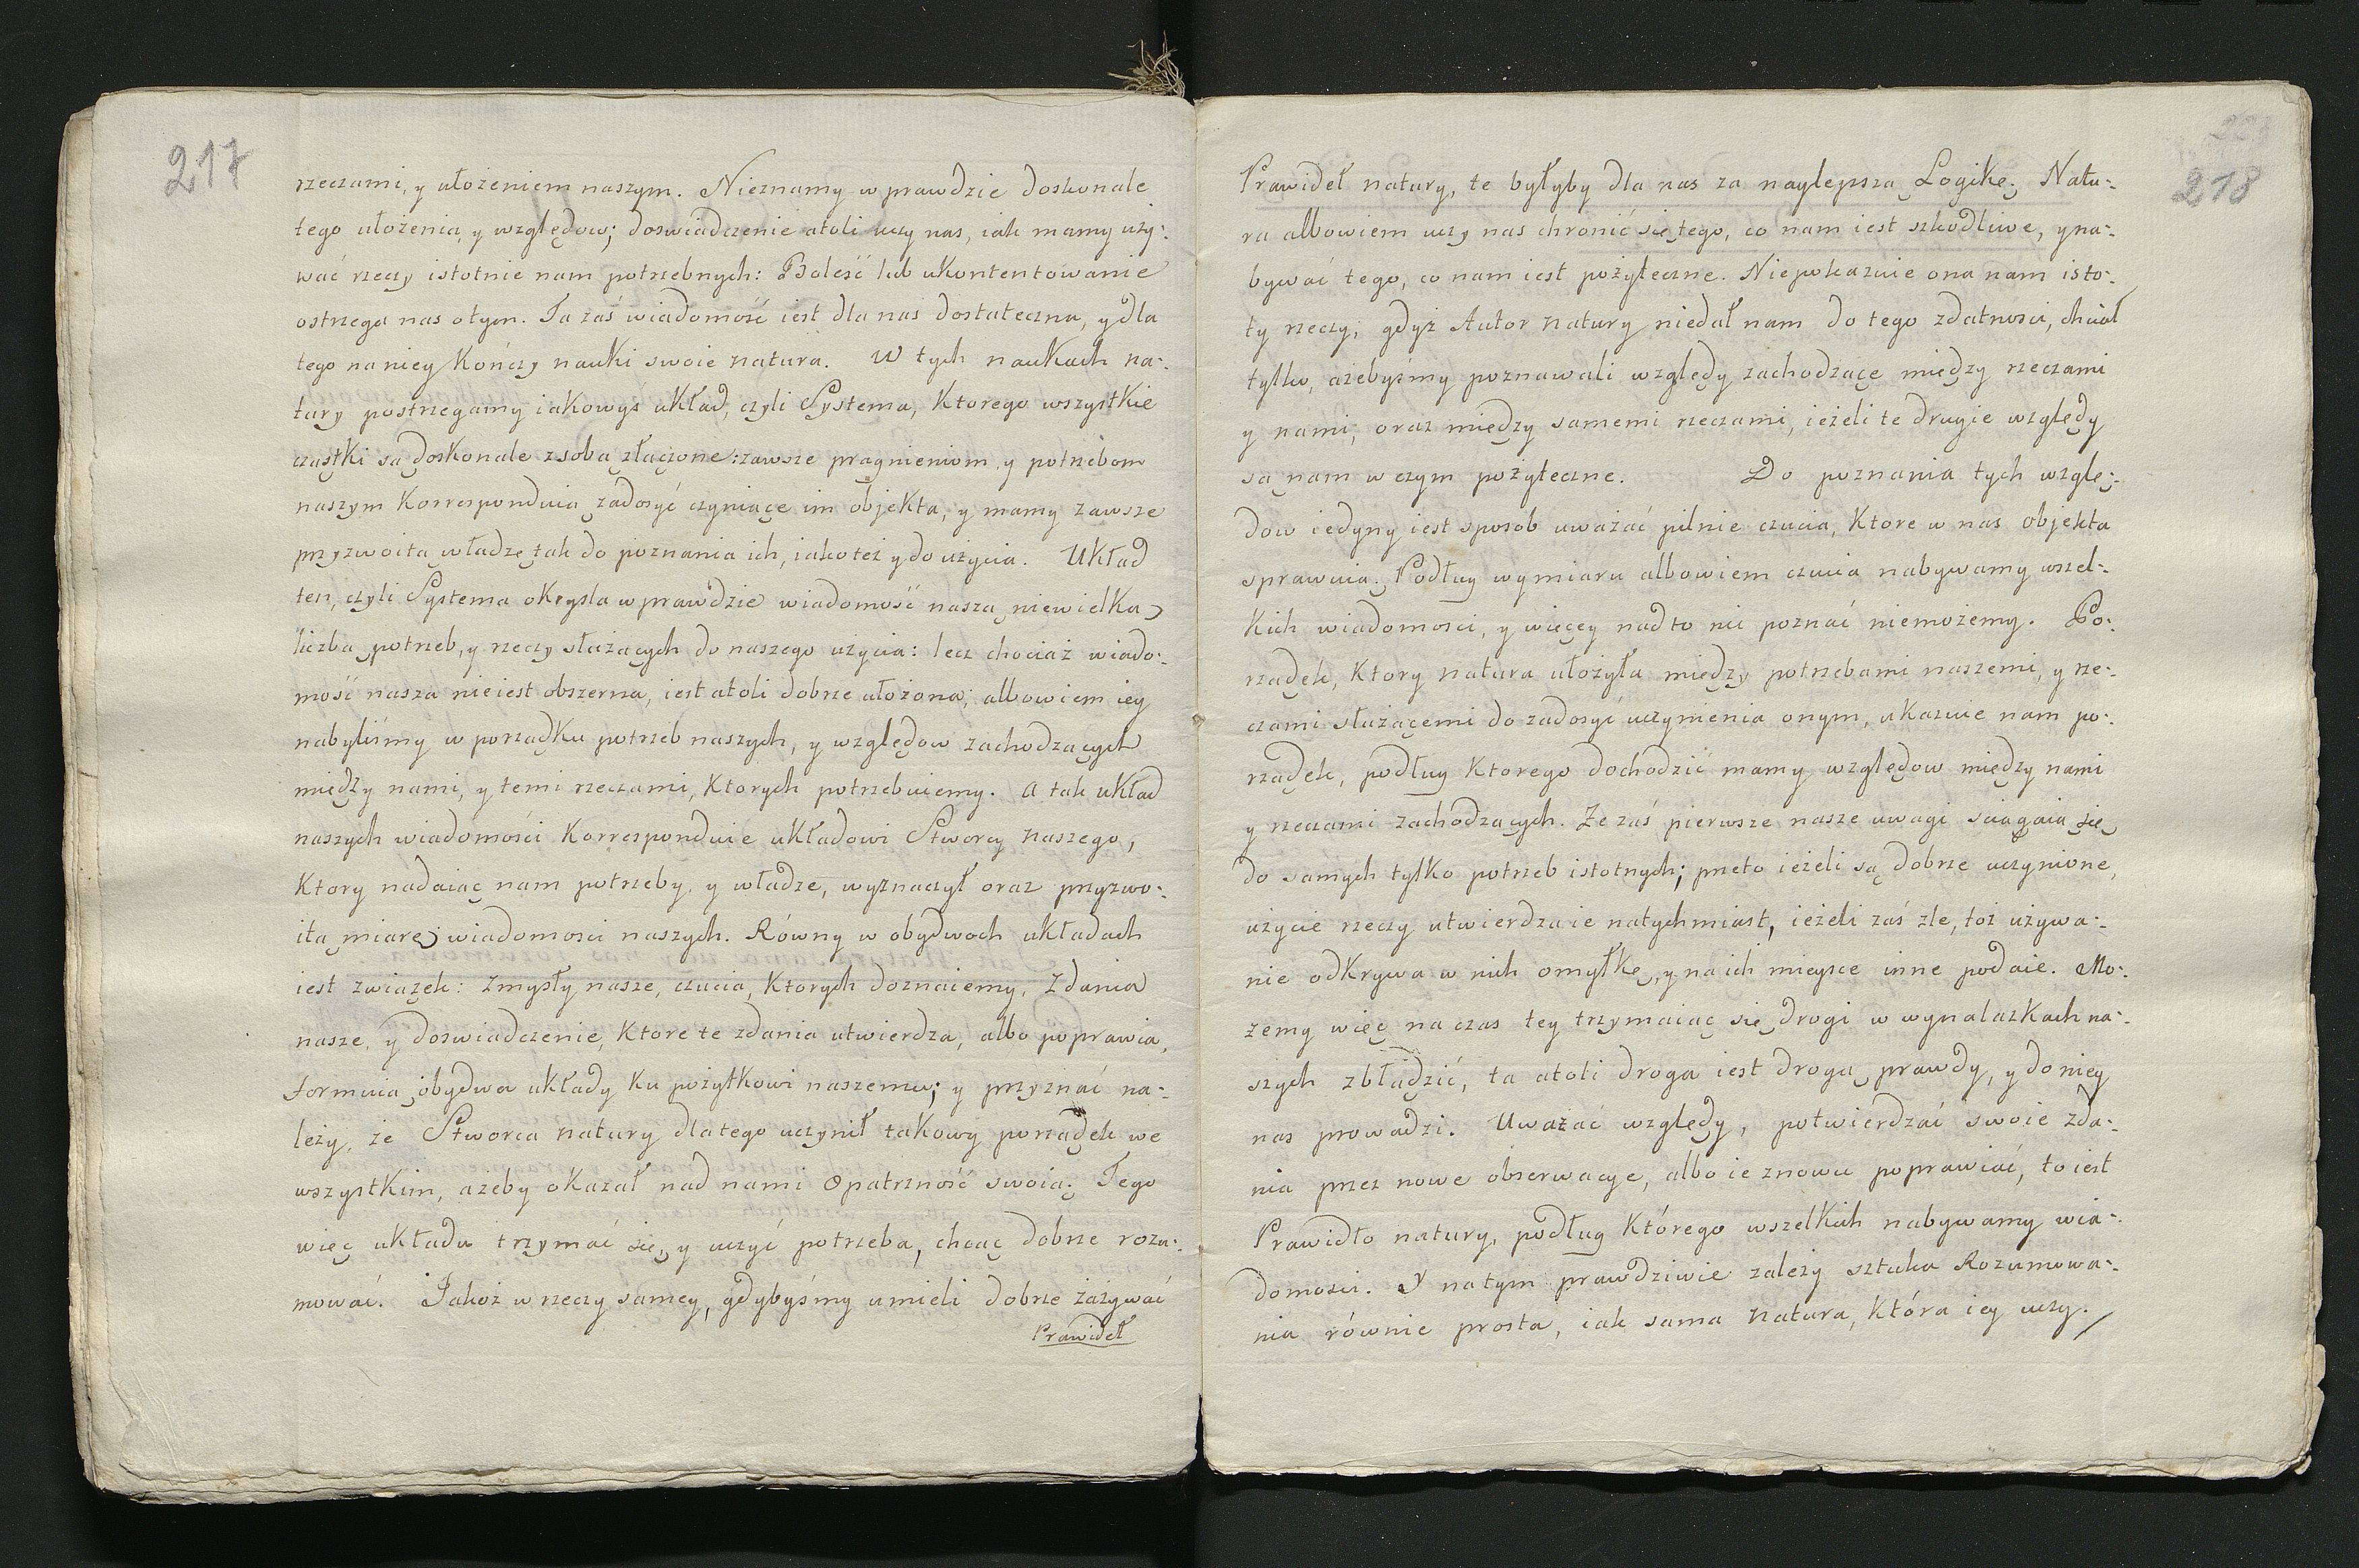 217
rzeczami, y ułożeniem naszym. Nieznamy w prawdzie doskonale
tego ułożenia, y względow; doswiadczenie atoli uczy nas, iak mamy uży-:
wać rzeczy istotnie nam potrzebnych: Boleść lub ukontentowanie
ostrzega nas otym. Ta zaś wiadomość iest dla nas dostateczna, y dla
tego na niey kończy nauki swoie natura. W tych naukach na-:
tury postrzegamy iakowyś układ, czyli Systema, Ktorego wszystkie
cząstki są doskonale z sobą złączone: zawsze pragnieniom, y potrzebom
naszym Korrespondują zadosyć czyniące im objekta, y mamy zawsze
przyzwoitą władzę tak do poznania ich, iako też y do użycia. Układ
ten, czyli Systema okrysla w prawdzie wiadomość naszą niewielką
liczbą potrzeb, y rzeczy służących do naszego użycia: lecz chociaż wiado-:
mość nasza nie iest obszerna, iest atoli dobrze ułożona; albowiem iey
nabyliśmy w porządku potrzeb naszych, y względow zachodzących
między nami, y temi rzeczami, Ktorych potrzebuiemy. A tak układ
naszych wiadomości Korresponduie układowi Stworcy naszego,
Ktory nadaiąc nam potrzeby, y władze, wyznaczył oraz przyzwo-:
itą miarę wiadomosci naszych. Równy w obydwoch układach
iest związek: Zmysły nasze, czucia, Ktorych doznaiemy, Zdania
nasze, y doswiadczenie, Ktore te zdania utwierdza, albo poprawia,
formuią obydwa układy ku pożytkowi naszemu; y przyznać na-:
leży, że Stworca natury dla tego uczynił takowy porządek we
wszystkim, ażeby okazał nad nami Opatrzność swoią. Tego
więc układu trzymać się, y uczyć potrzeba, chcąc dobrze rozu-:
mować. Jakoż w rzeczy samey, gdybyśmy umieli dobrze zażywać
Prawideł
218
Prawideł natury, te byłyby dla nas za naylepszą Logikę. Natu-:
ra albowiem uczy nas chronić się tego, co nam iest szkodliwe, y na-:
bywać tego, co nam iest pożyteczne. Niepokazuie ona nam isto-:
ty rzeczy, gdyż Autor natury niedał nam do tego zdatnosci, chciał
tylko, ażebyśmy poznawali względy zachodzące między rzeczami
y nami, oraz między samemi rzeczami, ieżeli te drugie względy
są nam w czym pożyteczne. Do poznania tych wzglę-:
dow iedyny iest sposob uważać pilnie czucia, Ktore w nas objekta
sprawuią. Podług wymiaru albowiem czucia nabywamy wszel-:
kich wiadomosci, y więcey nad to nic poznać niemożemy. Po-:
rządek, Ktory natura ułożyła między potrzebami naszemi, y rze-:
czami służącemi do zadosyć uczynienia onym, ukazuie nam po-:
rządek, podług Ktorego dochodzić mamy względow między nami
y rzeczami zachodzących. Że zaś pierwsze nasze uwagi sciągaią się
do samych tylko potrzeb istotnych; przeto ieżeli są dobrze uczynione,
użycie rzeczy utwierdza ie natychmiast, ieżeli zaś źle, toż używa-:
nie odkrywa w nich omyłkę, y na ich mieysce inne podaie. Mo-:
żemy więc na czas tey trzymaiąc się drogi w wynalazkach na-:
szych zbłądzić, ta atoli droga iest drogą prawdy, y do niey
nas prowadzi. Uważać względy, potwierdzać swoie zda-:
nia przez nowe obserwacye, albo ie znowu poprawiać, to iest
Prawidło natury, podług Którego wszelkich nabywamy wia-:
domosci. Y na tym prawdziwie zależy sztuka Rozumowa-:
nia równie prosta, iak sama Natura, Która iey uczy.